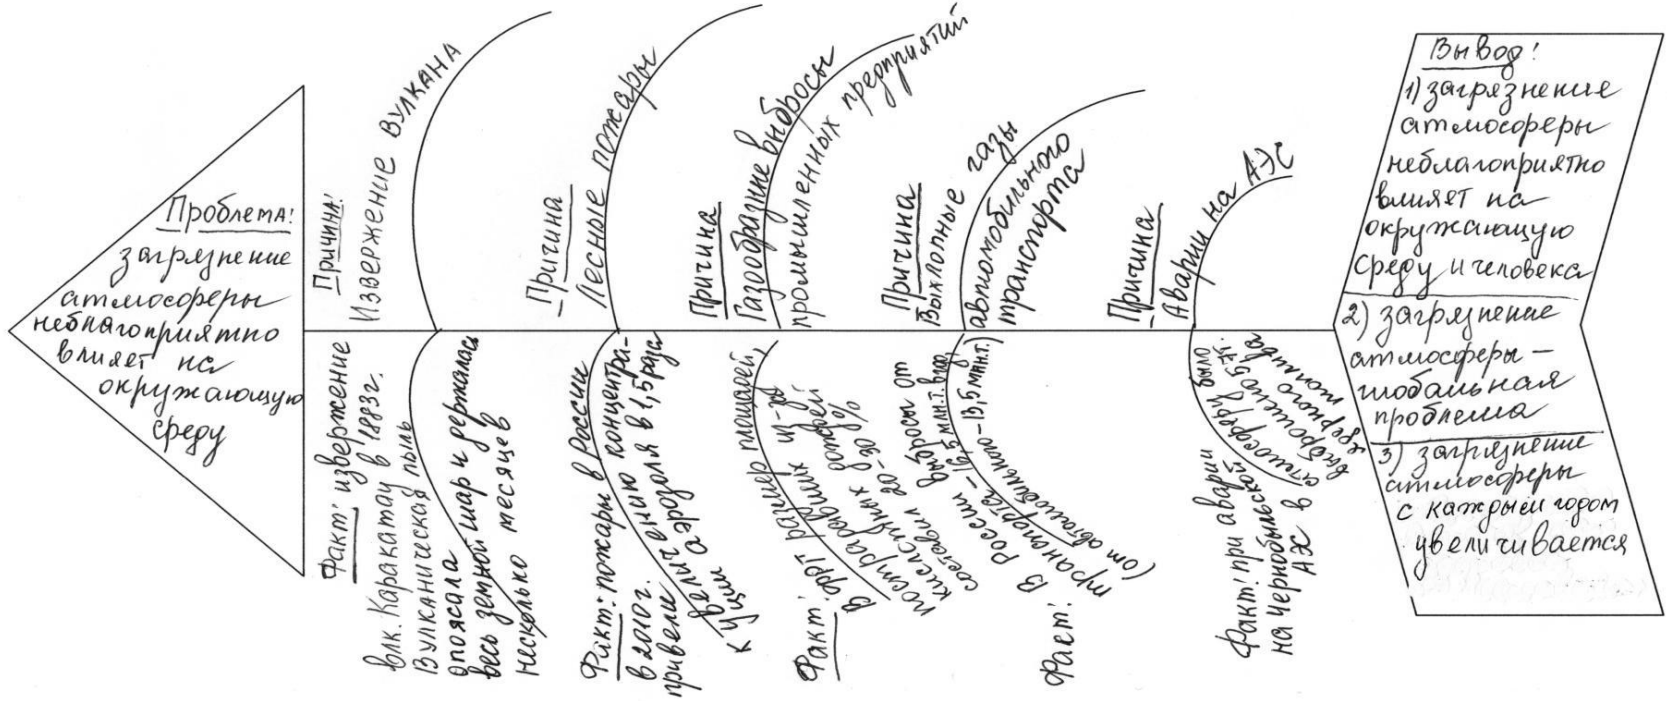 Проблема:
загрязнение
атмосферы
неблагоприятно
влияет на
окружающую
среду
Причина:
Извержение ВУЛКАНА
Причина
Лесные пожары
Причина
Газообразные выбросы
промышленных предприятий
Причина
Выхлопные газы
автомобильного
транспорта
Причина
Аварии на АЭС
Факт: извержение
влк. Каракатау в 1883г.
Вулканическая пыль
опоясала
весь земной шар и держалась
несколько месяцев
Факт: пожары в России
в 2010г.
привели
к увеличению концентра-
ции аэрозоля в 1,5 раза
Факт:
В ФРГ размер площадей,
пострадавших из-за
кислотных дождей
составил 20-30%
Факт:
В России выбросы от
транспорта – 16,5 млн.т. в год
(от автомобильного – 13,5 млн.т.)
Факт: при аварии
на Чернобыльской
АЭС в
атмосферу было
выброшено 5 т.
ядерного топлива
Вывод:
1) загрязнение
атмосферы
неблагоприятно
влияет на
окружающую
среду и человека
2) загрязнение
атмосферы –
глобальная
проблема
3) загрязнение
атмосферы
с каждым годом
увеличивается